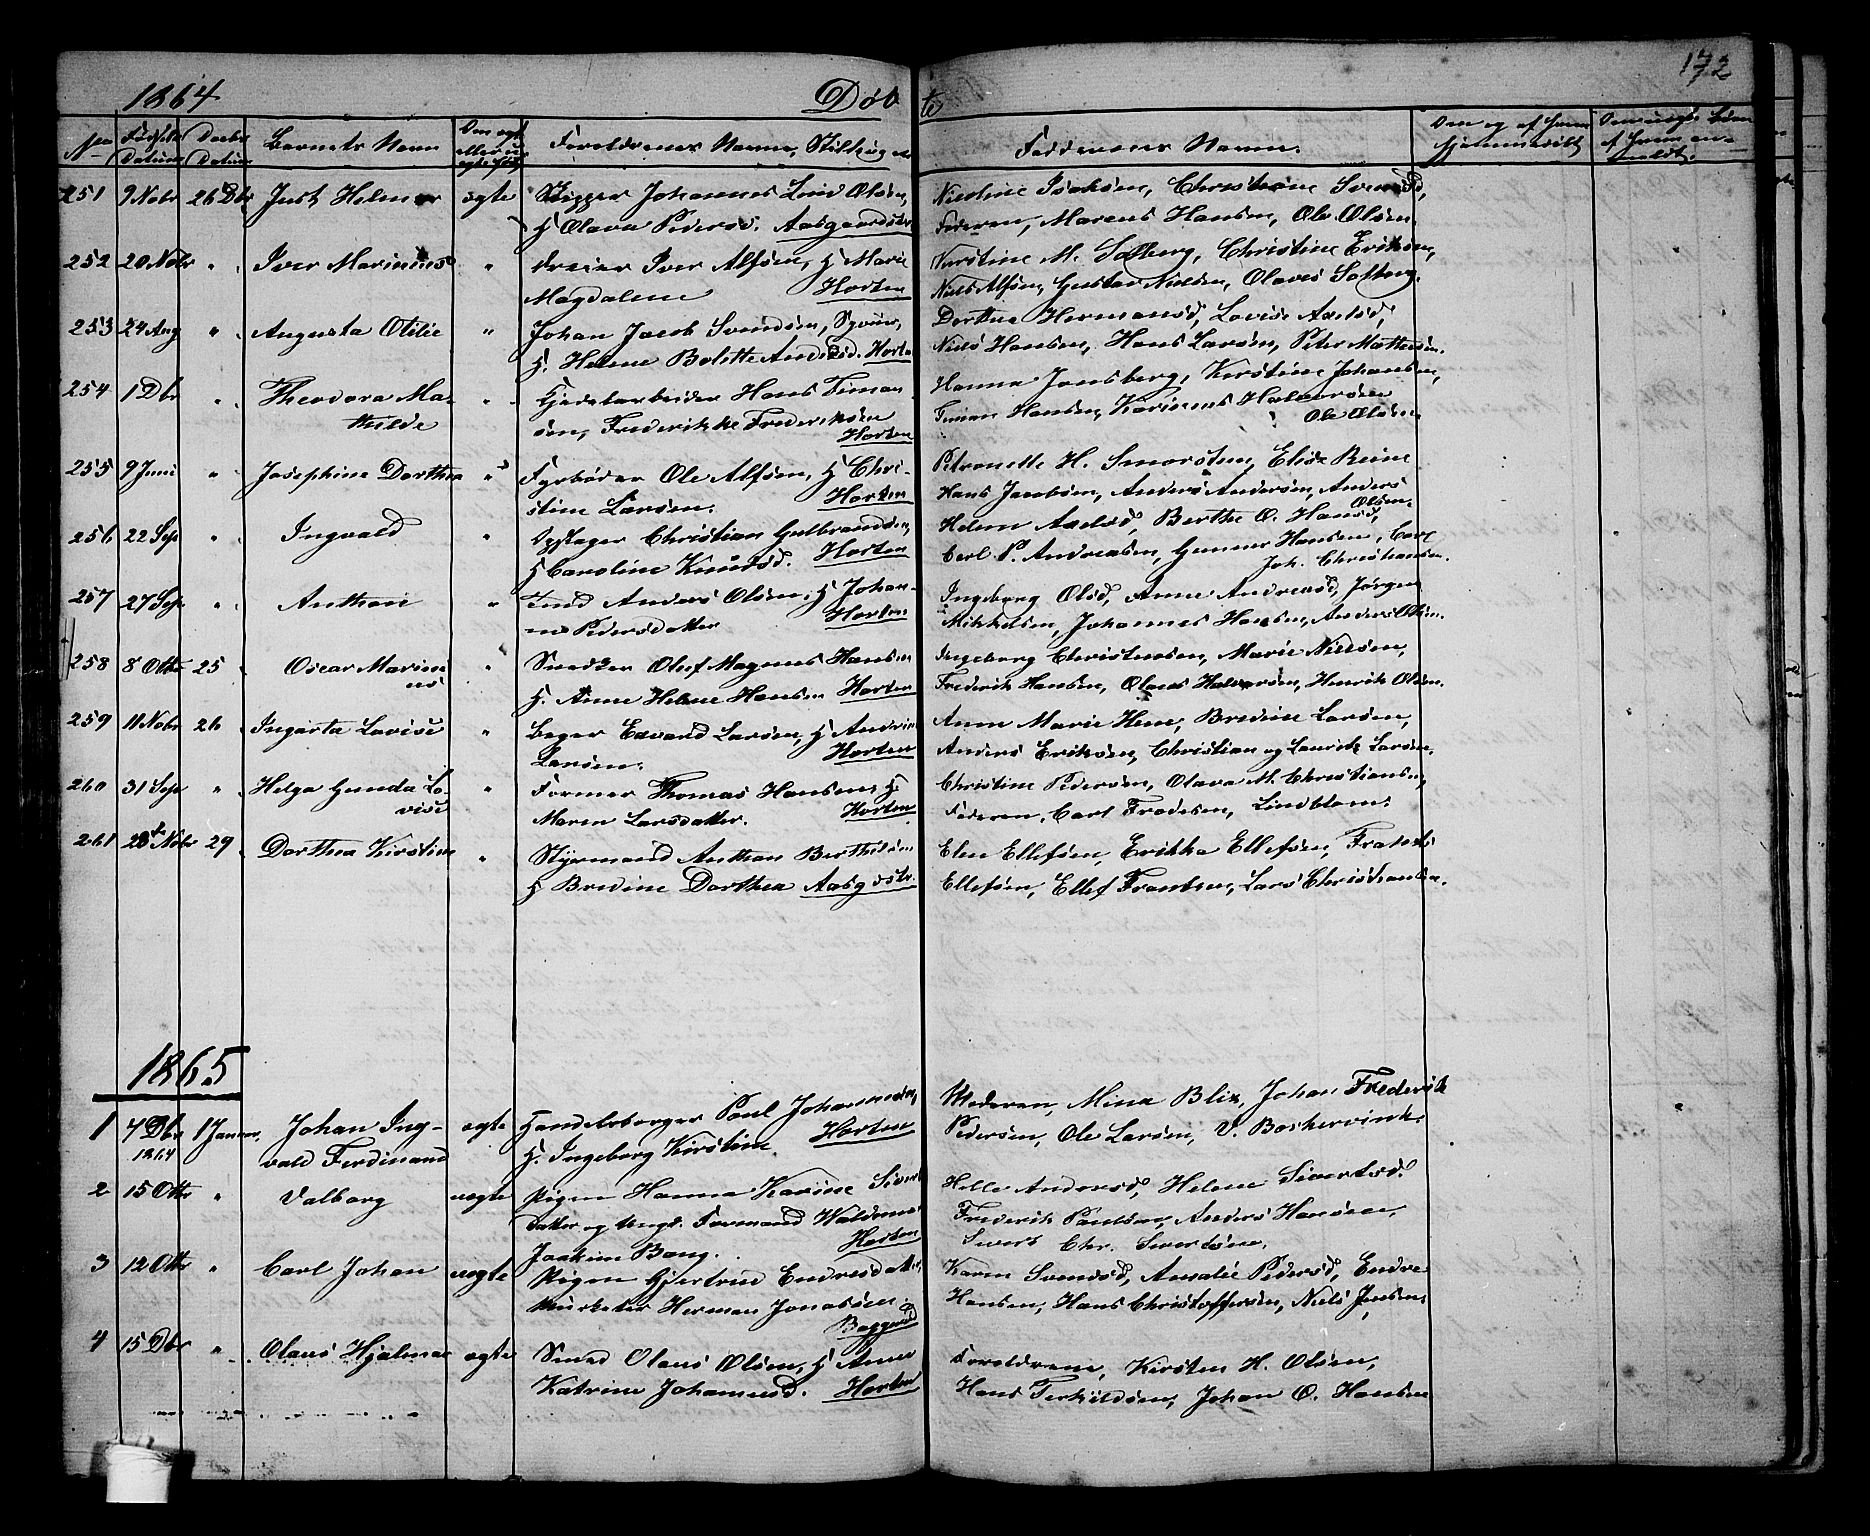 1864 Døbte 172
No Fødsels Datum Daabs Datum Barnets Navn Om ægte eller uægte født Forældrenes Navne, Stilling
Faddernes Navne.
251 9 Nobr 26 Dbr Just Helmer ægte Skipper Johannes Lind Olsen,
H Olava Pedersd. Aasgaardstr
Nicoline Isaksen, Christiane Svendsd,
Faderen, Marcus Hansen, Ole Olsen.
252 20 Nobr " Iver Marinus " Dreier Iver Alfsen, H Marie
Magdalene Horten
Kirstine M. Solberg, Christine Eriksen,
Niels Alfsen, Gustav Nielsen, Olaves Solberg.
253 24 Aug " Augusta Otilie " Johan Jacob Svendsen,
H. Helene Bolette Andersd. Horten
Dorthea Hermansd, Lovise Axelsd,
Niels Hansen, Hans Larsen, Peter Mathesen.
254 1 Dbr " Theodora Ma-
thilde
" Kjedelarbeider Hans Timan
sen, Frederikke Frederiksen
Horten
Hanna Jonsberg, Kirstine Johansen,
Timan Hansen, Karinius Halvorsen
Ole Olsen.
255 9 Juni " Josephine Dorthea " Fyrbøder Ole Alfsen, H Chri-
stine Larsen. Horten
Petronelle H. Smorsten, Elise Beine
Hans Jacobsen, Anders Andersen, Anders
Olsen.
256 22 Sep " Ingvald " Opslager Christian Gulbrandsen,
H Caroline Knudsd. Horten
Helene Axelsd, Berthe O. Hansd,
Carl P. Andreasen, Gunner Hansen, Carl
Joh. Christiansen.
257 27 Sep " Anthon " Tmd Anders Olsen, H Johan-
ne Pedersdatter Horten
Ingeborg Olsd, Anne Andreasd, Jørgen
Mikkelsen, Johannes Hansen, Anders Olsen.
258 8 Otbr 25 Oscar Marini
us
" Snedker Oluf Magnus Hansen
H. Anne Helene Hansen Horten
Ingeborg Christensen, Marie Nielsen,
Frederik Hansen, Olaus Halvorsen, Henrik Olsen.
259 11 Nobr 26 Ingarta Lovise " Bager Edvard Larsen, H Andrine
Larsen. Horten
Anne Marie Hem, Bredine Larsen,
Anders Eriksen, Christian og Lauritz Larsen.
260 31 Sep " Helga Gunda Lo-
vise
" Former Thomas Hansen, H
Maren Larsdatter. Horten
Christine Pedersen, Olava M. Christiansen,
Faderen, Carl Fredesen, Lindblom.
261 28 Nobr 29 Dorthea Kirstine " Styrmand Anthon Berthelsen
H Bredine Dorthea Aasgdstr.
Elen Ellefsen, Erikka Ellefsen, Frants
Ellefsen, Ellef Frantsen, Lars Christiansen.
1865
1 4 Dbr 1864 1 Januar, Johan Ing-
vald Ferdinand
ægte Handelsborger Poul Johannesen,
H. Ingeborg Kirstine Horten
Moderen, Mina Blix, Johan Frederik
Pedersen, Ole Larsen, V. Boskervink.
2 15 Otbr " Valborg uægte Pigen Hanna Karine Sivert
datter og Ungk. Formand Waldemar
Joakim Bang. Horten
Helle Andersd, Helene Sivertsd.
Frederik Paulsen, Anders Hansen,
Sivert Chr. Sivertsen.
3 12 Otbr " Carl Johan uægte Pigen Gjertrud Endresdatter,
Musketer Herman Jonassen.
Karen Svendsd, Amalie Pedersd, Endre
Hansen, Hans Christoffersen, Niels Jensen,
4 15 Dbr " Olaus Hjalmar ægte Smed Olaus Olsen, H Anne
Katrine Johannesd. Horten
Forældrene, Kirsten H. Olsen,
Hans Terkildsen, Johan O. Hansen